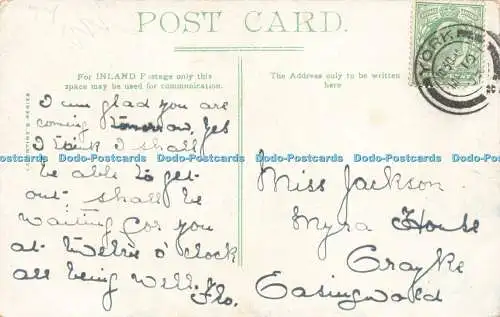 POST CARD.
For INLAND Postage only this
space may be used for communication.
The Address only to be written
here
YORK
VALENTINE'S SERIES
I am glad you are
coming tomorrow. Yes
I think I shall
be able to get
out, shall be
waiting for you
at twelve o'clock
all being well.
Flo.
Miss Jackson
Myra House
Crayke
Easingwold
Dodo-Postcards Dodo-Postcards Dodo-Postcards Dodo-Postcards Dodo-Postcards Dodo-Postcards